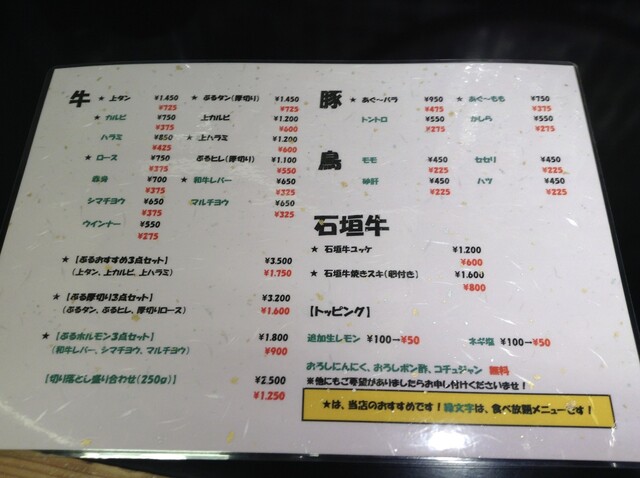 牛
★ 上タン ¥1.450 ¥725
★ カルビ ¥750 ¥375
ハラミ ¥850 ¥425
★ ロース ¥750 ¥375
¥700 ¥375
シマチョウ ¥650 ¥375
ウインナー ¥550 ¥275
★ ぶるタン(厚切り) ¥1.450 ¥725
上カルビ ¥1.200 ¥600
★ 上ハラミ ¥1.200 ¥600
ぶるヒレ(厚切り) ¥1.100 ¥550
★ 和牛レバー ¥650 ¥325
マルチョウ ¥650 ¥325
★ 【ぶるおすすめ3点セット】 ¥3.500
(上タン、上カルビ、上ハラミ) ¥1.750
★ 【ぶる厚切り3点セット】 ¥3.200
(ぶるタン、ぶるヒレ、厚切りロース) ¥1.600
★ 【ぶるホルモン3点セット】 ¥1.800
(和牛レバー、シマチョウ、マルチョウ) ¥900
【切り落とし盛り合わせ(250g)】 ¥2.500
¥1.250
豚
★ あぐ~バラ ¥950 ¥475
★ あぐ~もも ¥750 ¥375
トントロ ¥550 ¥275
かしら ¥550 ¥275
鳥
モモ ¥450 ¥225
セセリ ¥450 ¥225
砂肝 ¥450 ¥225
ハツ ¥450 ¥225
石垣牛
★ 石垣牛ユッケ ¥1.200
¥600
★ 石垣牛焼きスキ(卵付き) ¥1.600
¥800
【トッピング】
追加生レモン ¥100→¥50 ネギ塩 ¥100→¥50
おろしにんにく、おろしポン酢、コチュジャン 無料
※他にもご要望がありましたらお申し付けくださいませ!
★は、当店のおすすめです!緑文字は、食べ放題メニューです!